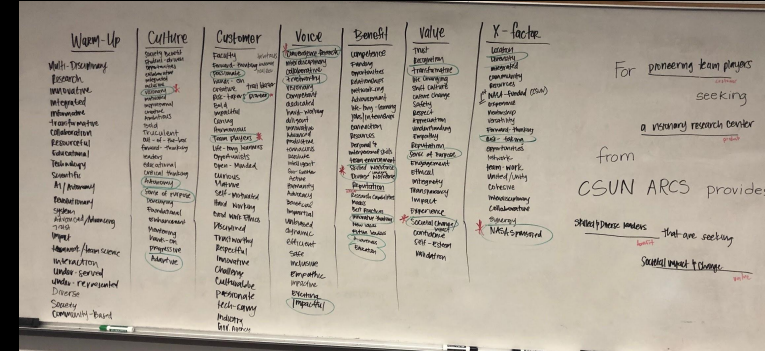 Warm-Up
Multi-Disciplinary
Research
Innovative
Integrated
Informative
Transformative
Collaboration
Resourceful
Educational
Technology
Scientific
AI/Autonomy
Revolutionary
System
Advanced/Advancing
Trust
Impact
Teamwork/team science
Interaction
Under-served
Under-represented
Diverse
Society
Community-Based
Culture
Society Benefit
opportunities
collaborative
integrated
visionary
motivated
creative
Ambitious
Bold
Truculent
out-of-the-box
forward-thinking
leaders
educational
critical thinking
Autonomy
Sense of purpose
Developing
Foundational
Enhancement
Mentoring
hands-on
progressive
Adaptive
Customer
Faculty
Forward-thinking
passionate
hands-on
creative
risk-takers
Bold
Impactful
Caring
Autonomous
Team players
Life-long learners
Opportunists
Open-Minded
Curious
Mature
Self-motivated
Hard Working
Good Work Ethics
Disciplined
Trustworthy
Respectful
Innovative
Challenge
Culturalable
passionate
tech-savvy
Industry
Gov Agency
Voice
interdisciplinary
collaborative
trustworthy
visionary
competent
dedicated
hard-working
diligent
innovative
Advanced
productive
tenacious
resolute
intelligent
Active
Humanity
Advocacy
beneficial
impartial
Unbiased
dynamic
efficient
safe
inclusive
Empathic
impactive
Exciting
Impactful
Benefit
competence
Funding
opportunities
Relationships
networking
Advancement
life-long-learning
jobs/internships
connection
Resources
Personal &
interpersonal skills
team environment
Skilled Workforce
Diverse Workforce
Reputation
Research Capabilities
Best Practices
innovative thinking
New ideas
Awareness
Education
Value
Trust
Recognition
transformative
life changing
Shift Culture
culture change
Safety
Respect
Appreciation
Understanding
Empathy
Reputation
Sense of Purpose
Engagement
Ethical
integrity
Transparency
Impact
Experience
Societal Change
impact
confidence
self-esteem
validation
X-factor
Location
Diversity
integrated
community
Resources
NASA-Funded (CSUN)
Experience
Mentorship
Versatility
forward-thinking
Risk-taking
opportunities
network
team-work
United/Unity
Cohesive
Interdisciplinary
Collaborative
Synergy
NASA Sponsored
For pioneering team players
customer
seeking
a visionary research center
product
from
CSUN ARCS provides
Skilled & Diverse leaders that are seeking
benefit
Societal impact & change
value